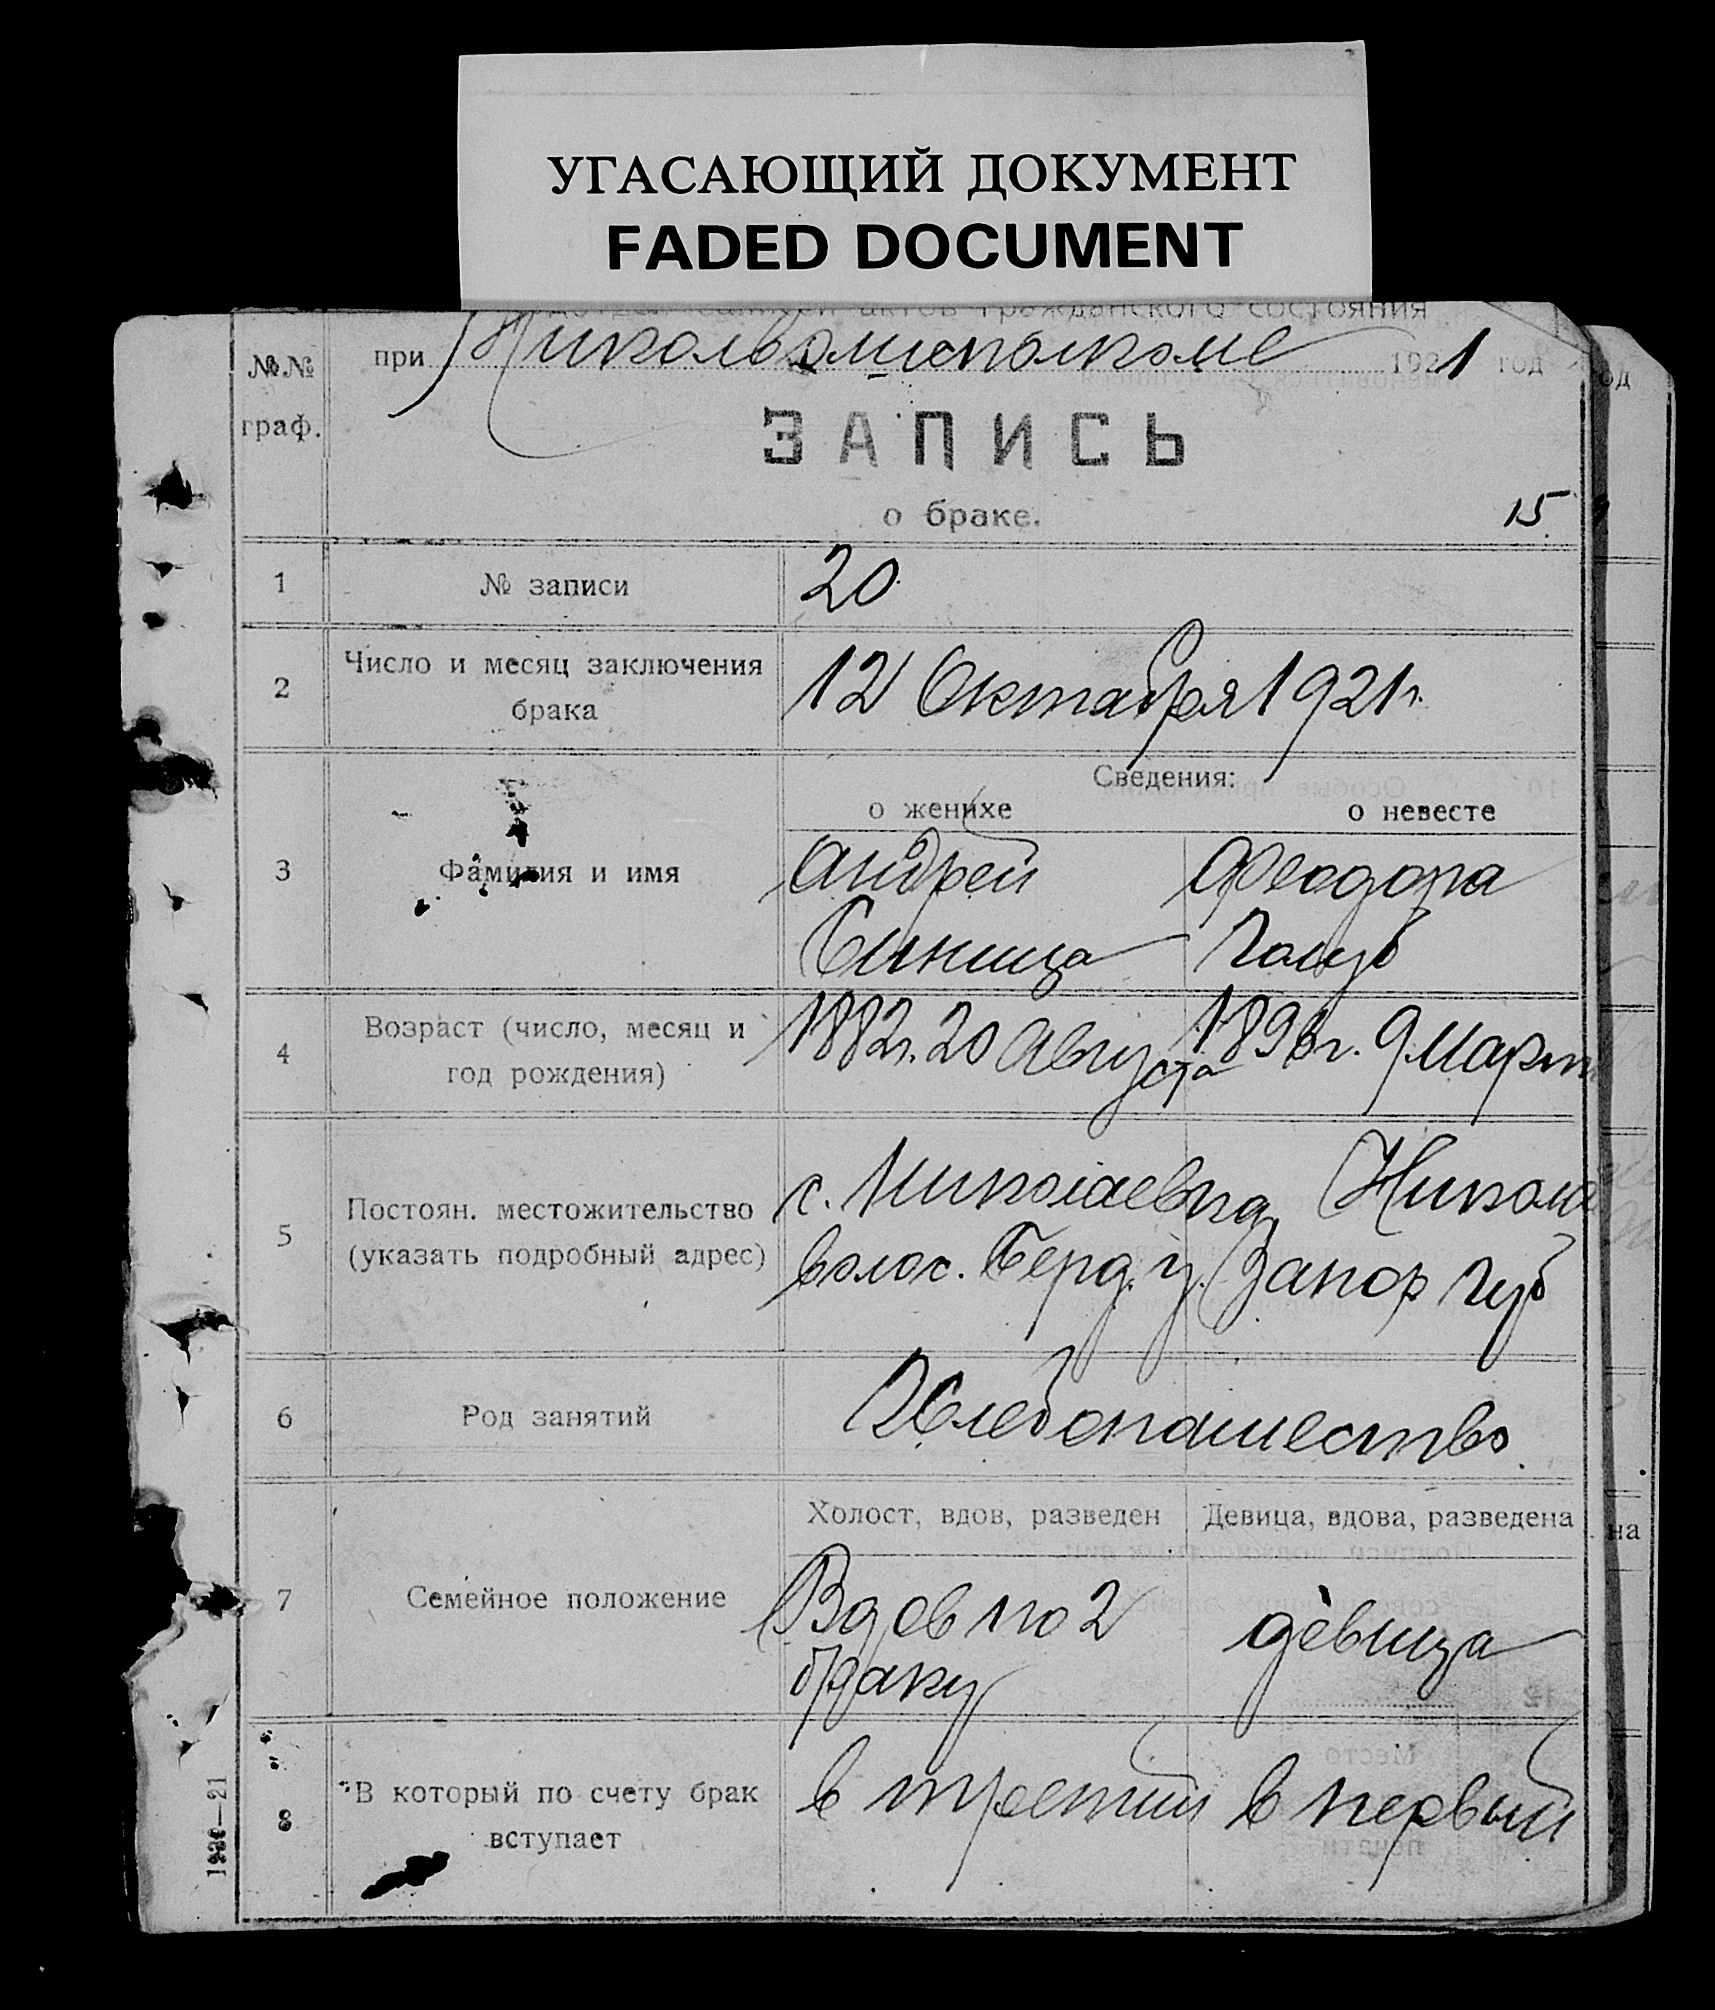 УГАСАЮЩИЙ ДОКУМЕНТ
FADED DOCUMENT
записей актов гражданского состояния
№№ граф.
при Николволисполкоме 1921 год
ЗАПИСЬ
о браке.
15
1 № записи 20
2 Число и месяц заключения брака 12 Октября 1921 г.
Сведения:
о женихе о невесте
3 Фамилия и имя
Андрей Феодора
Синица Голуб
4 Возраст (число, месяц и год рождения) 1882 г. 20 Августа 189 г. 9 Март
5 Постоян. местожительство (указать подробный адрес)
с. Николаевка, Никола
волос. Берд. у. Запор губ
6 Род занятий Хлебопашество
Холост, вдов, разведен Девица, вдова, разведена
7 Семейное положение
Вдов по 2 девица
браку
8 В который по счету брак вступает в третий в первый
1920—21
од
на